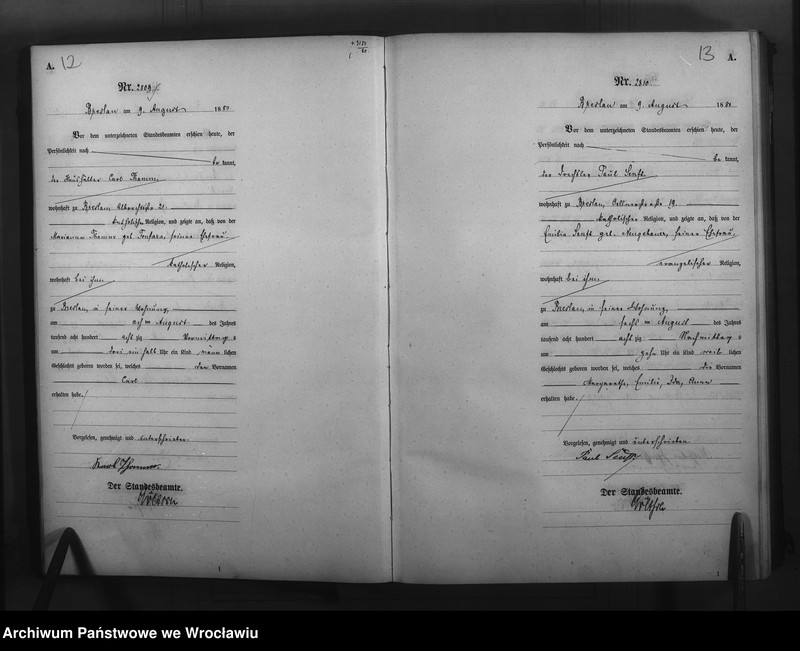 A. 12
+ 3181/80
Nr. 2809
Breslau am 9. August 1880
Vor dem unterzeichneten Standesbeamten erschien heute, der
Persönlichkeit nach
be kannt,
der Haushälter Carl Thamm
wohnhaft zu Breslau, Albrechtstr. 21.
katholischer Religion, und zeigte an, daß von der
Marianna Thamm geb. seiner Ehefrau,
katholischer Religion,
wohnhaft bei ihm
zu Breslau, in seiner Wohnung,
am acht ten August des Jahres
tausend acht hundert acht zig Vormittags
um drei ein halb Uhr ein Kind männ lichen
Geschlechts geboren worden sei, welches den Vornamen
Carl
erhalten habe.
Vorgelesen, genehmigt und unterschrieben
Karl Thamm
Der Standesbeamte.
1
13 A.
Nr. 2810
Breslau am 9. August 1880
Vor dem unterzeichneten Standesbeamten erschien heute, der
Persönlichkeit nach
be kannt,
der Drechsler Paul Senft
wohnhaft zu Breslau, 19.
katholischer Religion, und zeigte an, daß von der
Emilie Senft geb. seiner Ehefrau,
evangelischer Religion,
wohnhaft bei ihm
zu Breslau, in seiner Wohnung,
am sechs ten August des Jahres
tausend acht hundert acht zig Nachmittag s
um zehn Uhr ein Kind weib lichen
Geschlechts geboren worden sei, welches die Vornamen
Margarethe, Emilie, Ida, Anna
erhalten habe.
Vorgelesen, genehmigt und unterschrieben
Paul Senft
Der Standesbeamte.
1
Archiwum Państwowe we Wrocławiu